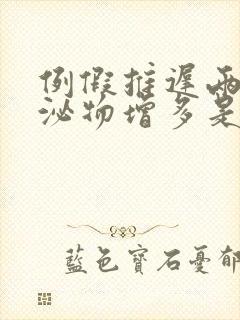 例假推迟两
泌物增多是
蓝色寶石憂郁